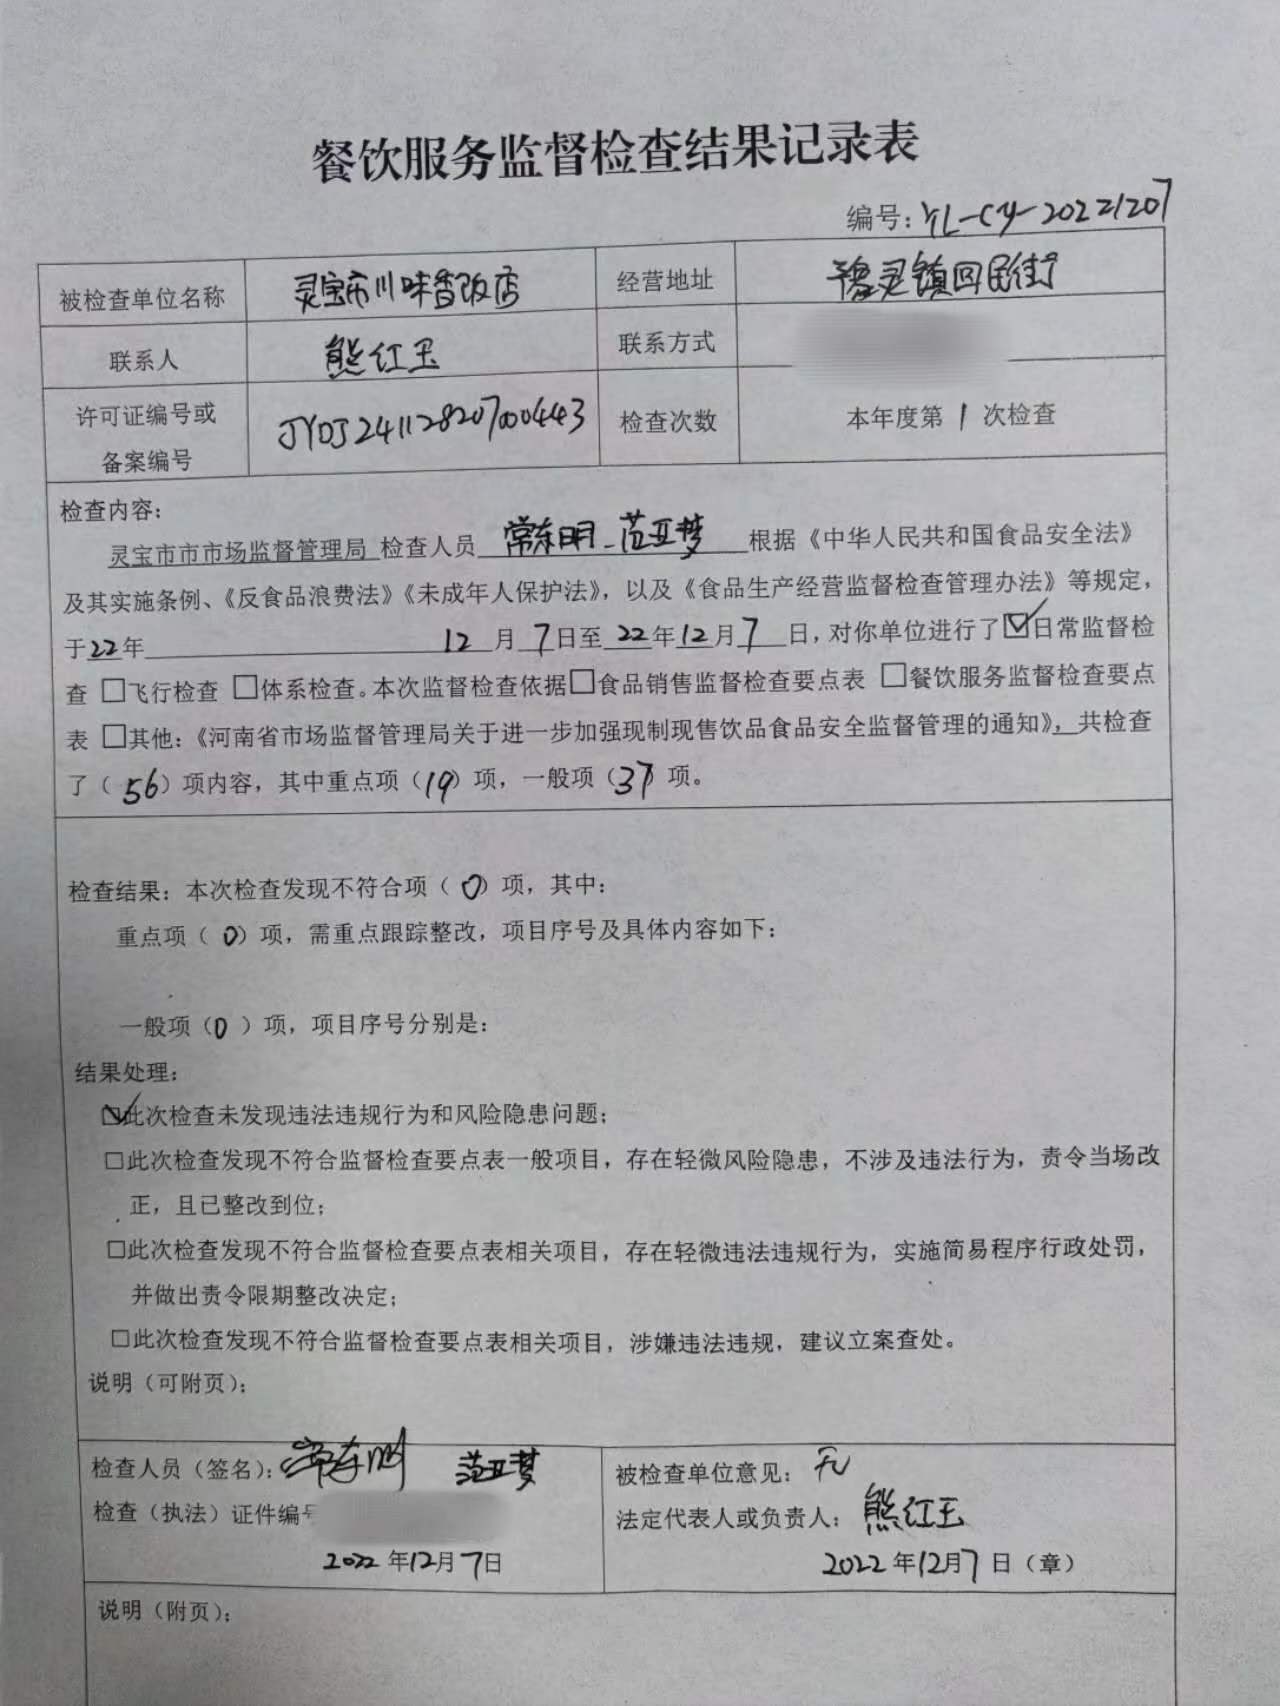 餐饮服务监督检查结果记录表
编号：YL-CY-20221207
被检查单位名称 灵宝市川味香饭店 经营地址 豫灵镇回民街
联系人 熊红玉 联系方式
许可证编号或备案编号 JYDJ24112820700443 检查次数 本年度第1次检查
检查内容：
灵宝市市市场监督管理局 检查人员 常东明、范亚梦 根据《中华人民共和国食品安全法》
及其实施条例、《反食品浪费法》《未成年人保护法》，以及《食品生产经营监督检查管理办法》等规定，
于22年 12月7日至22年12月7日，对你单位进行了☑日常监督检
查 □飞行检查 □体系检查。本次监督检查依据□食品销售监督检查要点表 □餐饮服务监督检查要点
表 □其他：《河南省市场监督管理局关于进一步加强现制现售饮品食品安全监督管理的通知》，共检查
了（56）项内容，其中重点项（19）项，一般项（37）项。
检查结果：本次检查发现不符合项（0）项，其中：
重点项（0）项，需重点跟踪整改，项目序号及具体内容如下：
一般项（0）项，项目序号分别是：
结果处理：
☑此次检查未发现违法违规行为和风险隐患问题；
□此次检查发现不符合监督检查要点表一般项目，存在轻微风险隐患，不涉及违法行为，责令当场改
正，且已整改到位；
□此次检查发现不符合监督检查要点表相关项目，存在轻微违法违规行为，实施简易程序行政处罚，
并做出责令限期整改决定；
□此次检查发现不符合监督检查要点表相关项目，涉嫌违法违规，建议立案查处。
说明（可附页）：
检查人员（签名）：常东明 范亚梦
检查（执法）证件编号
2022年12月7日
被检查单位意见：无
法定代表人或负责人：熊红玉
2022年12月7日（章）
说明（附页）：